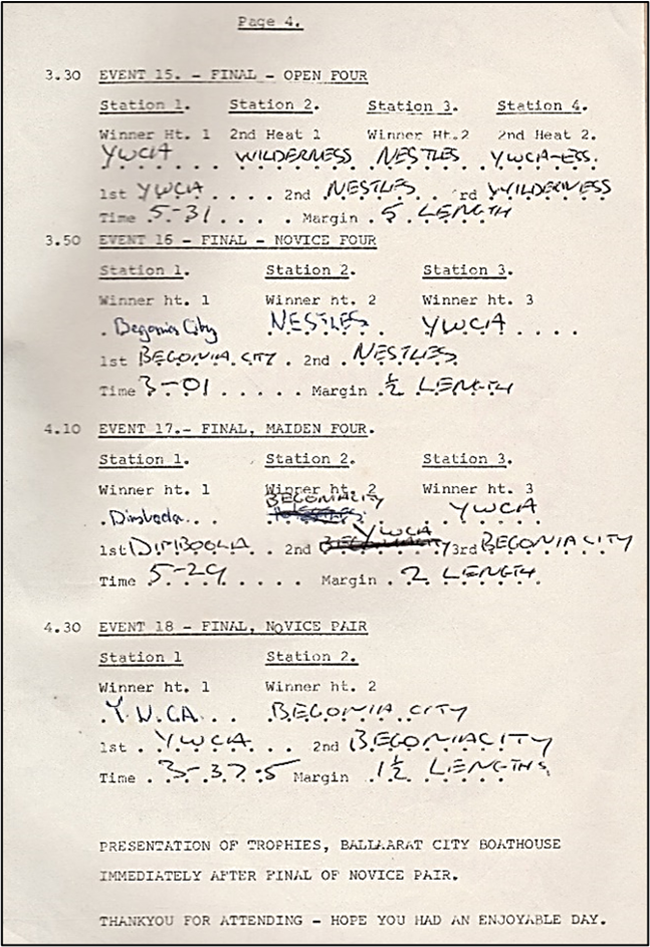 Page 4.
3.30 EVENT 15. - FINAL - OPEN FOUR
Station 1. Station 2. Station 3. Station 4.
Winner Ht. 1 2nd Heat 1 Winner Ht.2 2nd Heat 2.
YWCA WILDERNESS NESTLES YWCA-ESS.
1st YWCA 2nd NESTLES 'rd WILDERNESS
Time 5-31 Margin 5 LENGTH
3.50 EVENT 16 - FINAL - NOVICE FOUR
Station 1. Station 2. Station 3.
Winner ht. 1 Winner ht. 2 Winner ht. 3
Begonia City NESTLES YWCA
1st BEGONIA CITY 2nd NESTLES
Time 3-01 Margin ½ LENGTH
4.10 EVENT 17.- FINAL, MAIDEN FOUR.
Station 1. Station 2. Station 3.
Winner ht. 1 Winner ht. 2 Winner ht. 3
BEGONIACITY
Dimboola YWCA
1st DIMBOOLA 2nd YWCA 3rd BEGONIA CITY
Time 5-29 Margin 2 LENGTH
4.30 EVENT 18 - FINAL, NOVICE PAIR
Station 1 Station 2.
Winner ht. 1 Winner ht. 2
Y.W.CA BEGONIA CITY
1st YWCA 2nd BEGONIACITY
Time 3-37.5 Margin 1½ LENGTHS
PRESENTATION OF TROPHIES, BALLAARAT CITY BOATHOUSE
IMMEDIATELY AFTER FINAL OF NOVICE PAIR.
THANKYOU FOR ATTENDING - HOPE YOU HAD AN ENJOYABLE DAY.